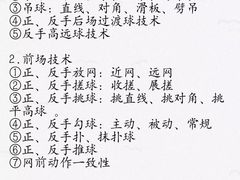 ③吊球：直线、对角、滑板、劈吊
④正、反手后场过渡球技术
⑤反手高远球技术
2.前场技术
①正、反手放网：近网、远网
②正、反手搓球：收搓、展搓
③正、反手挑球：挑直线、挑对角、挑
平高球。
④正、反手勾球：主动、被动、常规
⑤正、反手扑、抹扑球
⑥正、反手推球
⑦网前动作一致性